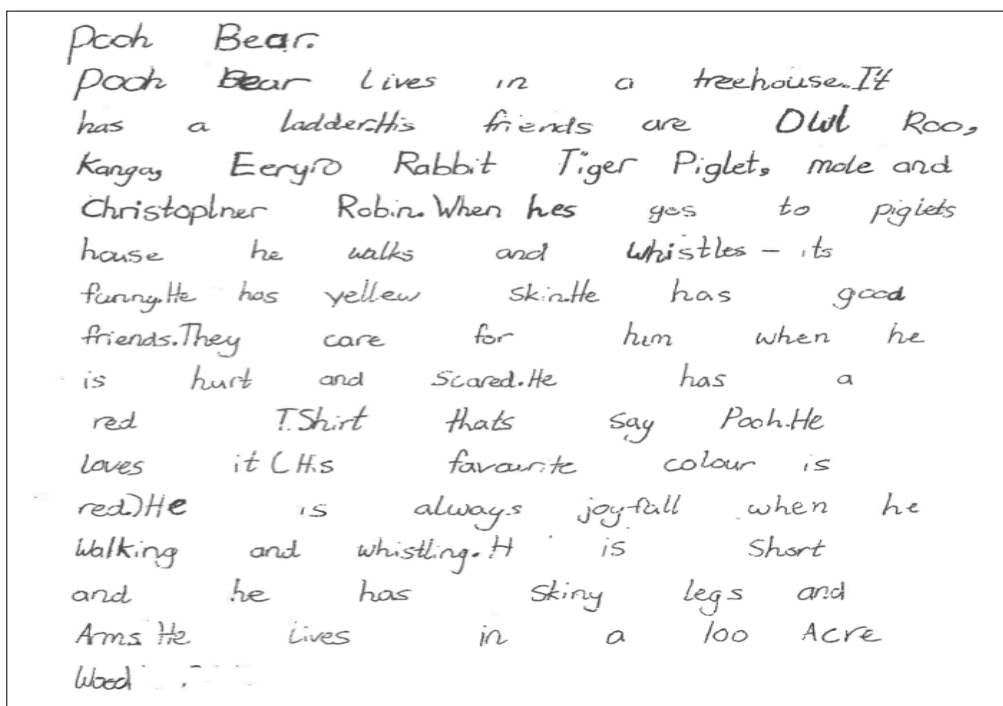 Pooh Bear.
Pooh Bear lives in a treehouse. It
has a ladder. His friends are Owl Roo,
Kanga, Eeryro Rabbit Tiger Piglet, mole and
Christoplner Robin. When hes gos to piglets
house he walks and whistles - its
funny. He has yellew skin. He has good
friends. They care for him when he
is hurt and scared. He has a
red T.Shirt thats say Pooh. He
loves it (His favourite colour is
red.) He is always joyfull when he
walking and whistling. H is short
and he has skiny legs and
Arms He lives in a 100 Acre
Wood .